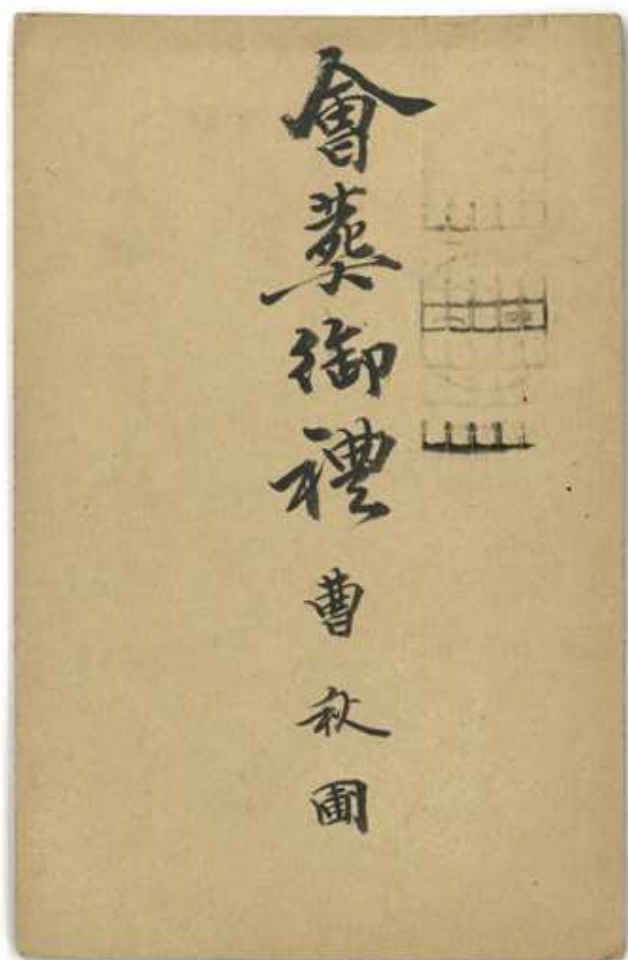 會葬御禮 曹秋圃